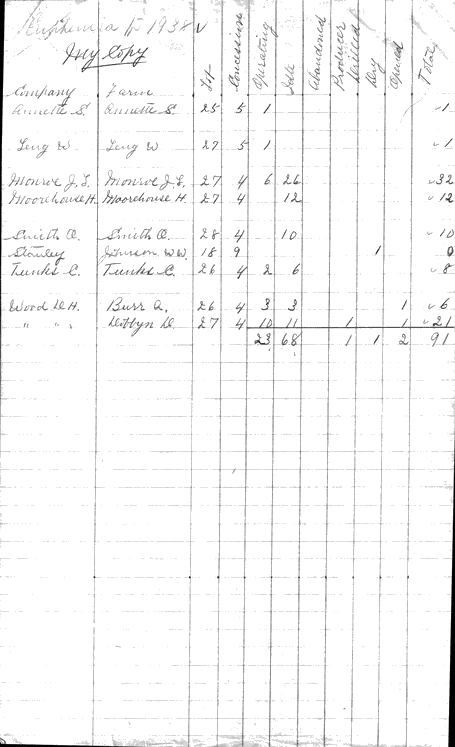 Euphemia Tp 1938 ✓
My Copy
Company Farm Lot Concession Operating Idle Abandoned Producer Drilled Dry Opened Total
Annette S. Annette S. 25 5 1 ✓1
Leng W Leng W 27 5 1 ✓1
Monroe J.L. Monroe J.L. 27 4 6 26 ✓32
Moorehouse H. Moorehouse H. 27 4 12 ✓12
Smith O. Smith O. 28 4 10 ✓10
Stanley Johnson W.W. 18 9 1 0
Tunks C. Tunks C. 26 4 2 6 ✓8
Wood D.H. Burr A. 26 4 3 3 1 ✓6
" " " Dobbyn D. 27 4 10 11 1 1 ✓21
23 68 1 1 2 91